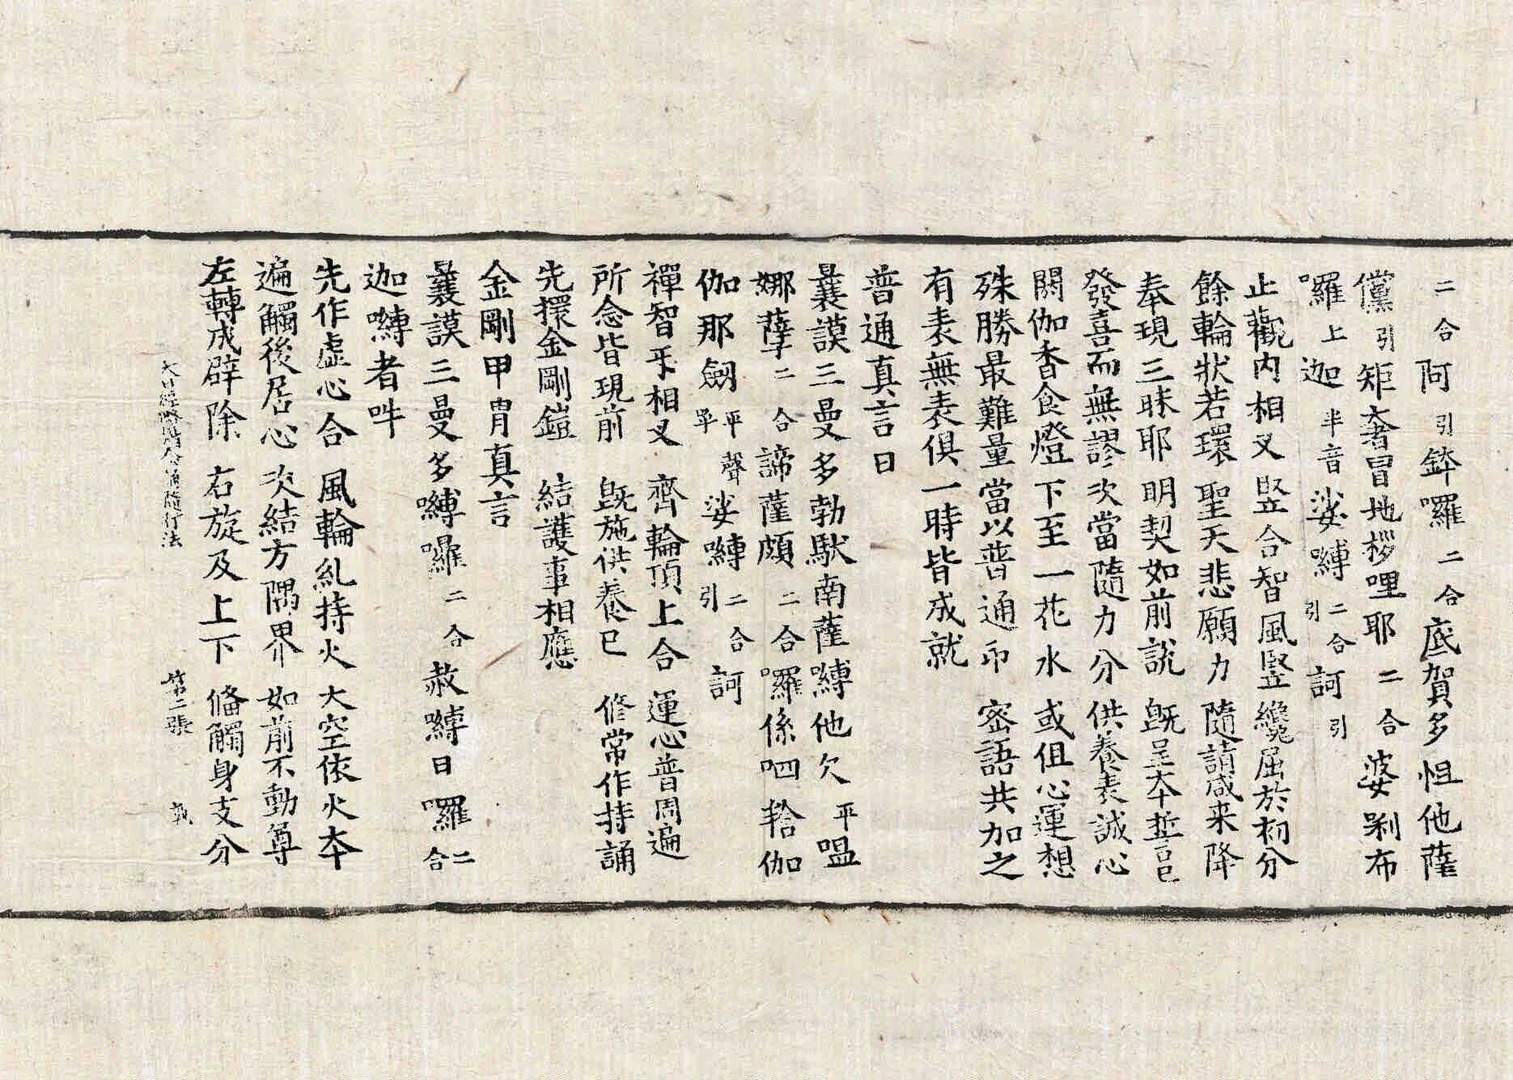 二合阿引鉢囉二合底賀多怛他薩
儻引矩奢冒地拶哩耶二合婆剎布
囉上迦半音娑嚩二合引訶引
止觀內相叉 竪合智風竪 纔屈於初分
餘輪狀若環 聖天悲願力 隨請咸来降
奉現三昧耶 明契如前說 既呈本誓言已
發喜而無謬 次當隨力分 供養表誠心
閼伽香食燈 下至一花水 或但心運想
殊勝最難量 當以普通印 密語共加之
有表無表俱 一時皆成就
普通真言曰
曩謨三曼多勃馱南薩嚩他欠平嗢
娜孽二合諦薩頗二合囉係呬䶎伽
伽那劒平聲娑嚩二合引訶
禪智手相叉 齊輪頂上合 運心普周遍
所念皆現前 既施供養已 修常作持誦
先擐金剛鎧 結護事相應
金剛甲冑真言
曩謨三曼多嚩囉二合赧嚩日囉二合
迦嚩者吽
先作虛心合 風輪糺持火 大空依火本
遍觸後居心 次結方隅界 如前不動尊
左轉成辟除 右旋及上下 俻觸身支分
大日經略攝念誦隨行法 第二張